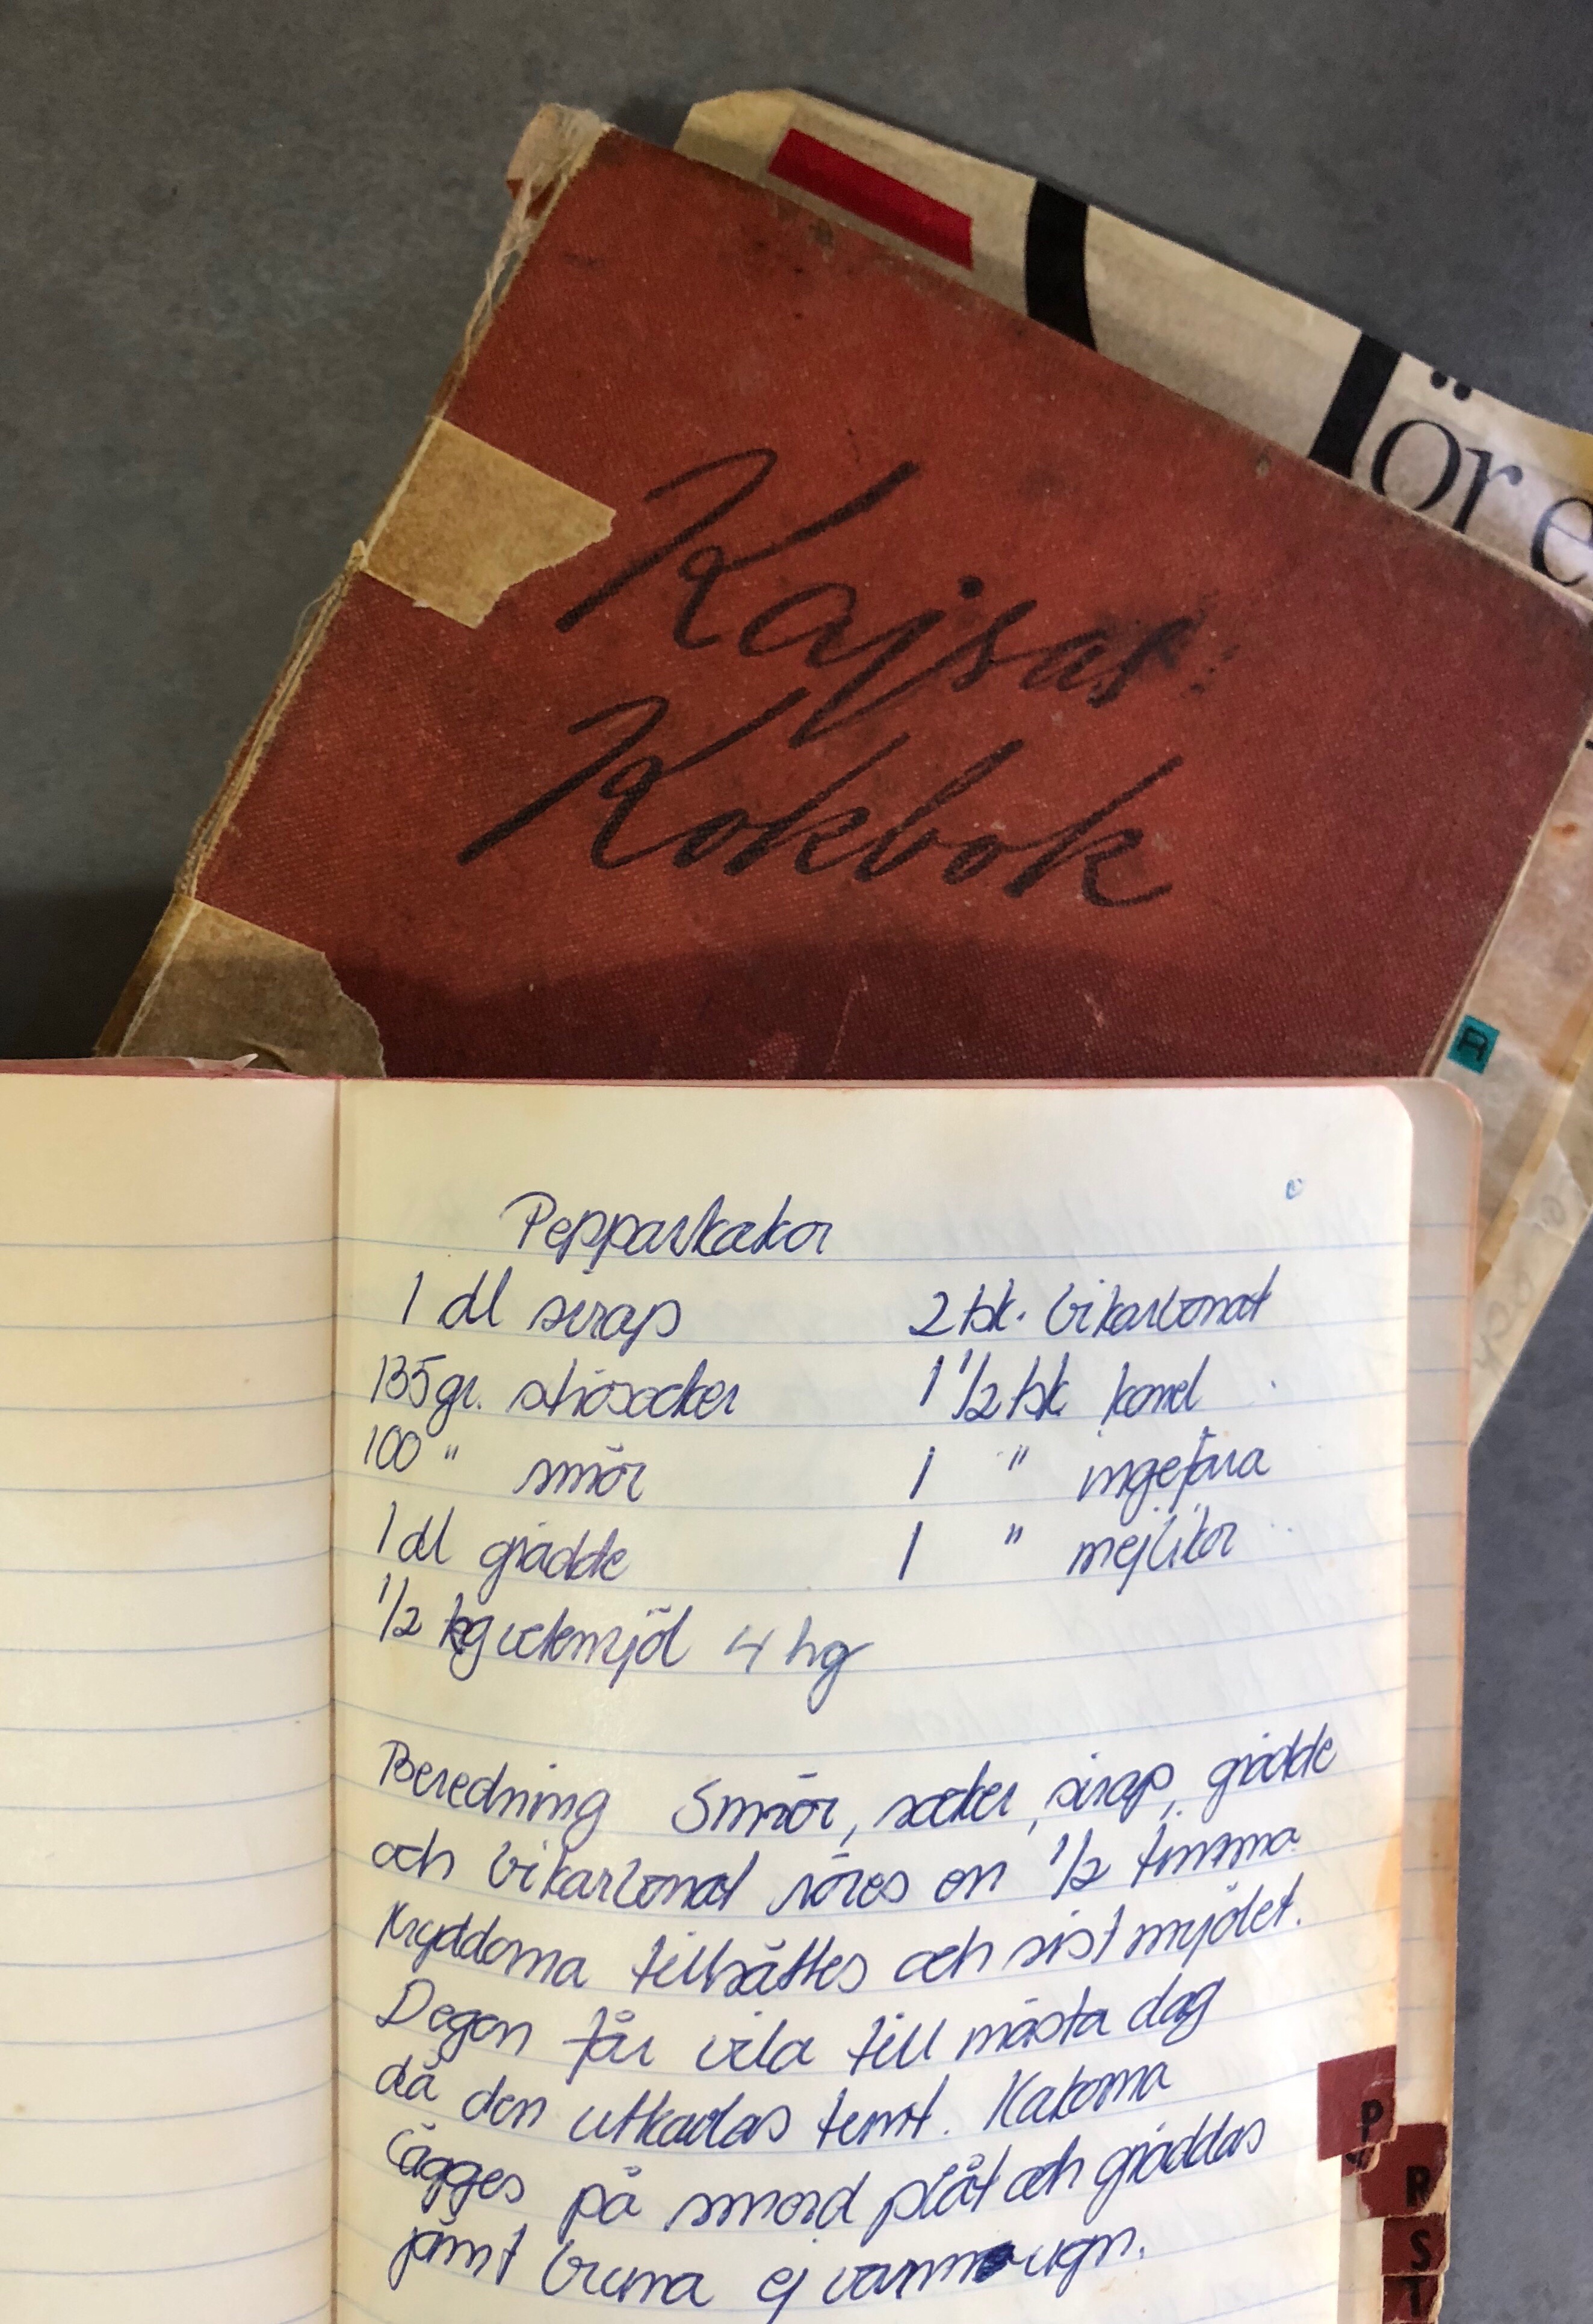 ör e
Kajsas
Kokbok
A
Pepparkakor
1 dl sirap 2 tsk. bikarbonat
135 gr. strösocker 1 1/2 tsk kanel
100 " smör 1 " ingefära
1 dl grädde 1 " nejlikor
1/2 kg vetemjöl 4 hg
Beredning Smör, socker, sirap, grädde
och bikarbonat röres en 1/2 timma.
Kryddorna tillsättes och sist mjölet.
Degen får vila till nästa dag
då den utkavlas tunt. Kakorna
lägges på smord plåt och gräddas
jämt bruna ej varm ugn.
P
R
S
T